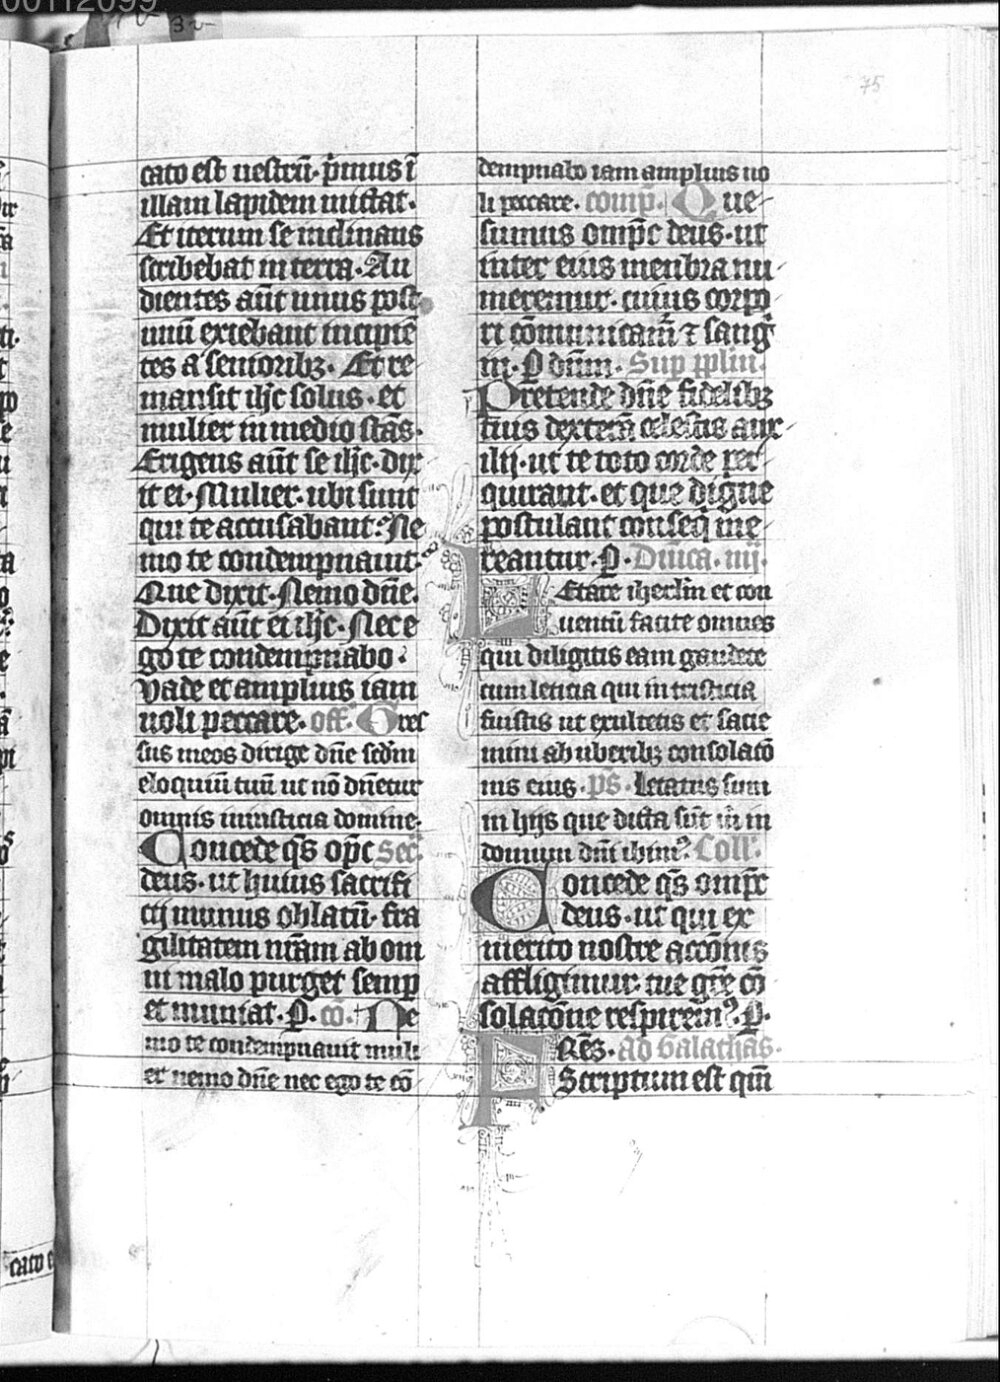 75
cato est uestrū. p̄mus ī
illam lapidem mittat.
Et iterum se inclinans
scribebat in terra. Au
dientes aūt unus post
unū exiebant incipiē
tes a senioribꝫ. Et re
mansit ih̄c solus. et
mulier in medio stās.
Erigens aūt se ih̄c. dix
it ei. Mulier. ubi sunt
qui te accusabant? Ne
mo te condempnauit.
Que dixit. Nemo dn̄e.
Dixit aūt ei ih̄c. Nec e
go te condempnabo.
Vade et amplius iam
noli peccare. off. Gres
sus meos dirige dn̄e sc̄dm
eloquiū tuū ut nō dn̄etur
omnis iniusticia domine.
Concede q̄s op̄c Sec̄.
deus. ut huius sacrifi
cij munus oblatū. fra
gilitatem nr̄am ab om
ni malo purget semp
et muniat. P. cō. Ne
mo te condempnauit muli
er nemo dn̄e nec ego te cō
dempnabo iam amplius no
li peccare. comp̄. Que
sumus omp̄c deus. ut
inter eius menbra nu
meremur. cuius corpo
ri cōmunicam̄ ⁊ sang
ni. P dn̄m. Sup pplm̄.
Pretende dn̄e fidelibꝫ
tuis dexterā celestis aux
ilij. ut te toto corde per
quirant. et que digne
postulant conseq̄ me
reantur. P. Dn̄ica. iiij.
Letare iherlm̄ et con
uentū facite omnes
qui diligitis eam gaudete
cum leticia qui in tristicia
fuistis ut exultetis et sacie
mini ab uberibꝫ consolacō
nis eius. p̄s. Letatus sum
in hijs que dicta sūt m̄ in
domum dn̄i ibim⁹. Coll̄.
Concede q̄s omp̄c
deus. ut qui ex
merito nostre accōnis
affligimur. tue gr̄e cō
solacōne respirem⁹. P.
Fr̄es. ad Galathas.
Scriptum est qm̄
cato e